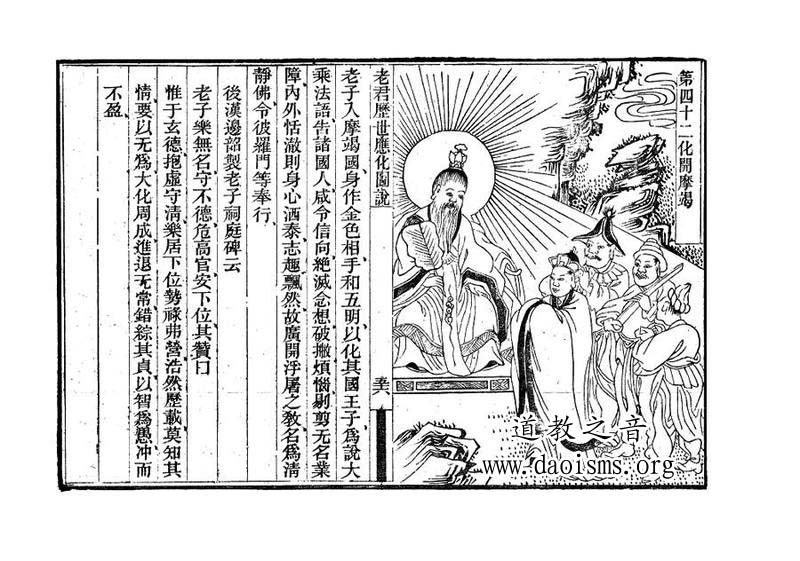 第四十二化開摩竭
老君歷世應化圖說
老子入摩竭國身作金色相手和五明以化其國王子爲說大
乘法語告諸國人咸令信向絕滅念想破撇煩惱剔剪无名業
障內外恬澈則身心洒泰志趣飄然故廣開浮屠之教名爲清
靜佛令彼羅門等奉行
後漢邊韶製老子祠庭碑云
老子樂無名守不德危高官安下位其贊曰
惟于玄德抱虛守清樂居下位勢祿弗營浩然歷載莫知其
情要以无爲大化周成進退无常錯綜其貞以智爲愚冲而
不盈
道教之音
www.daoisms.org